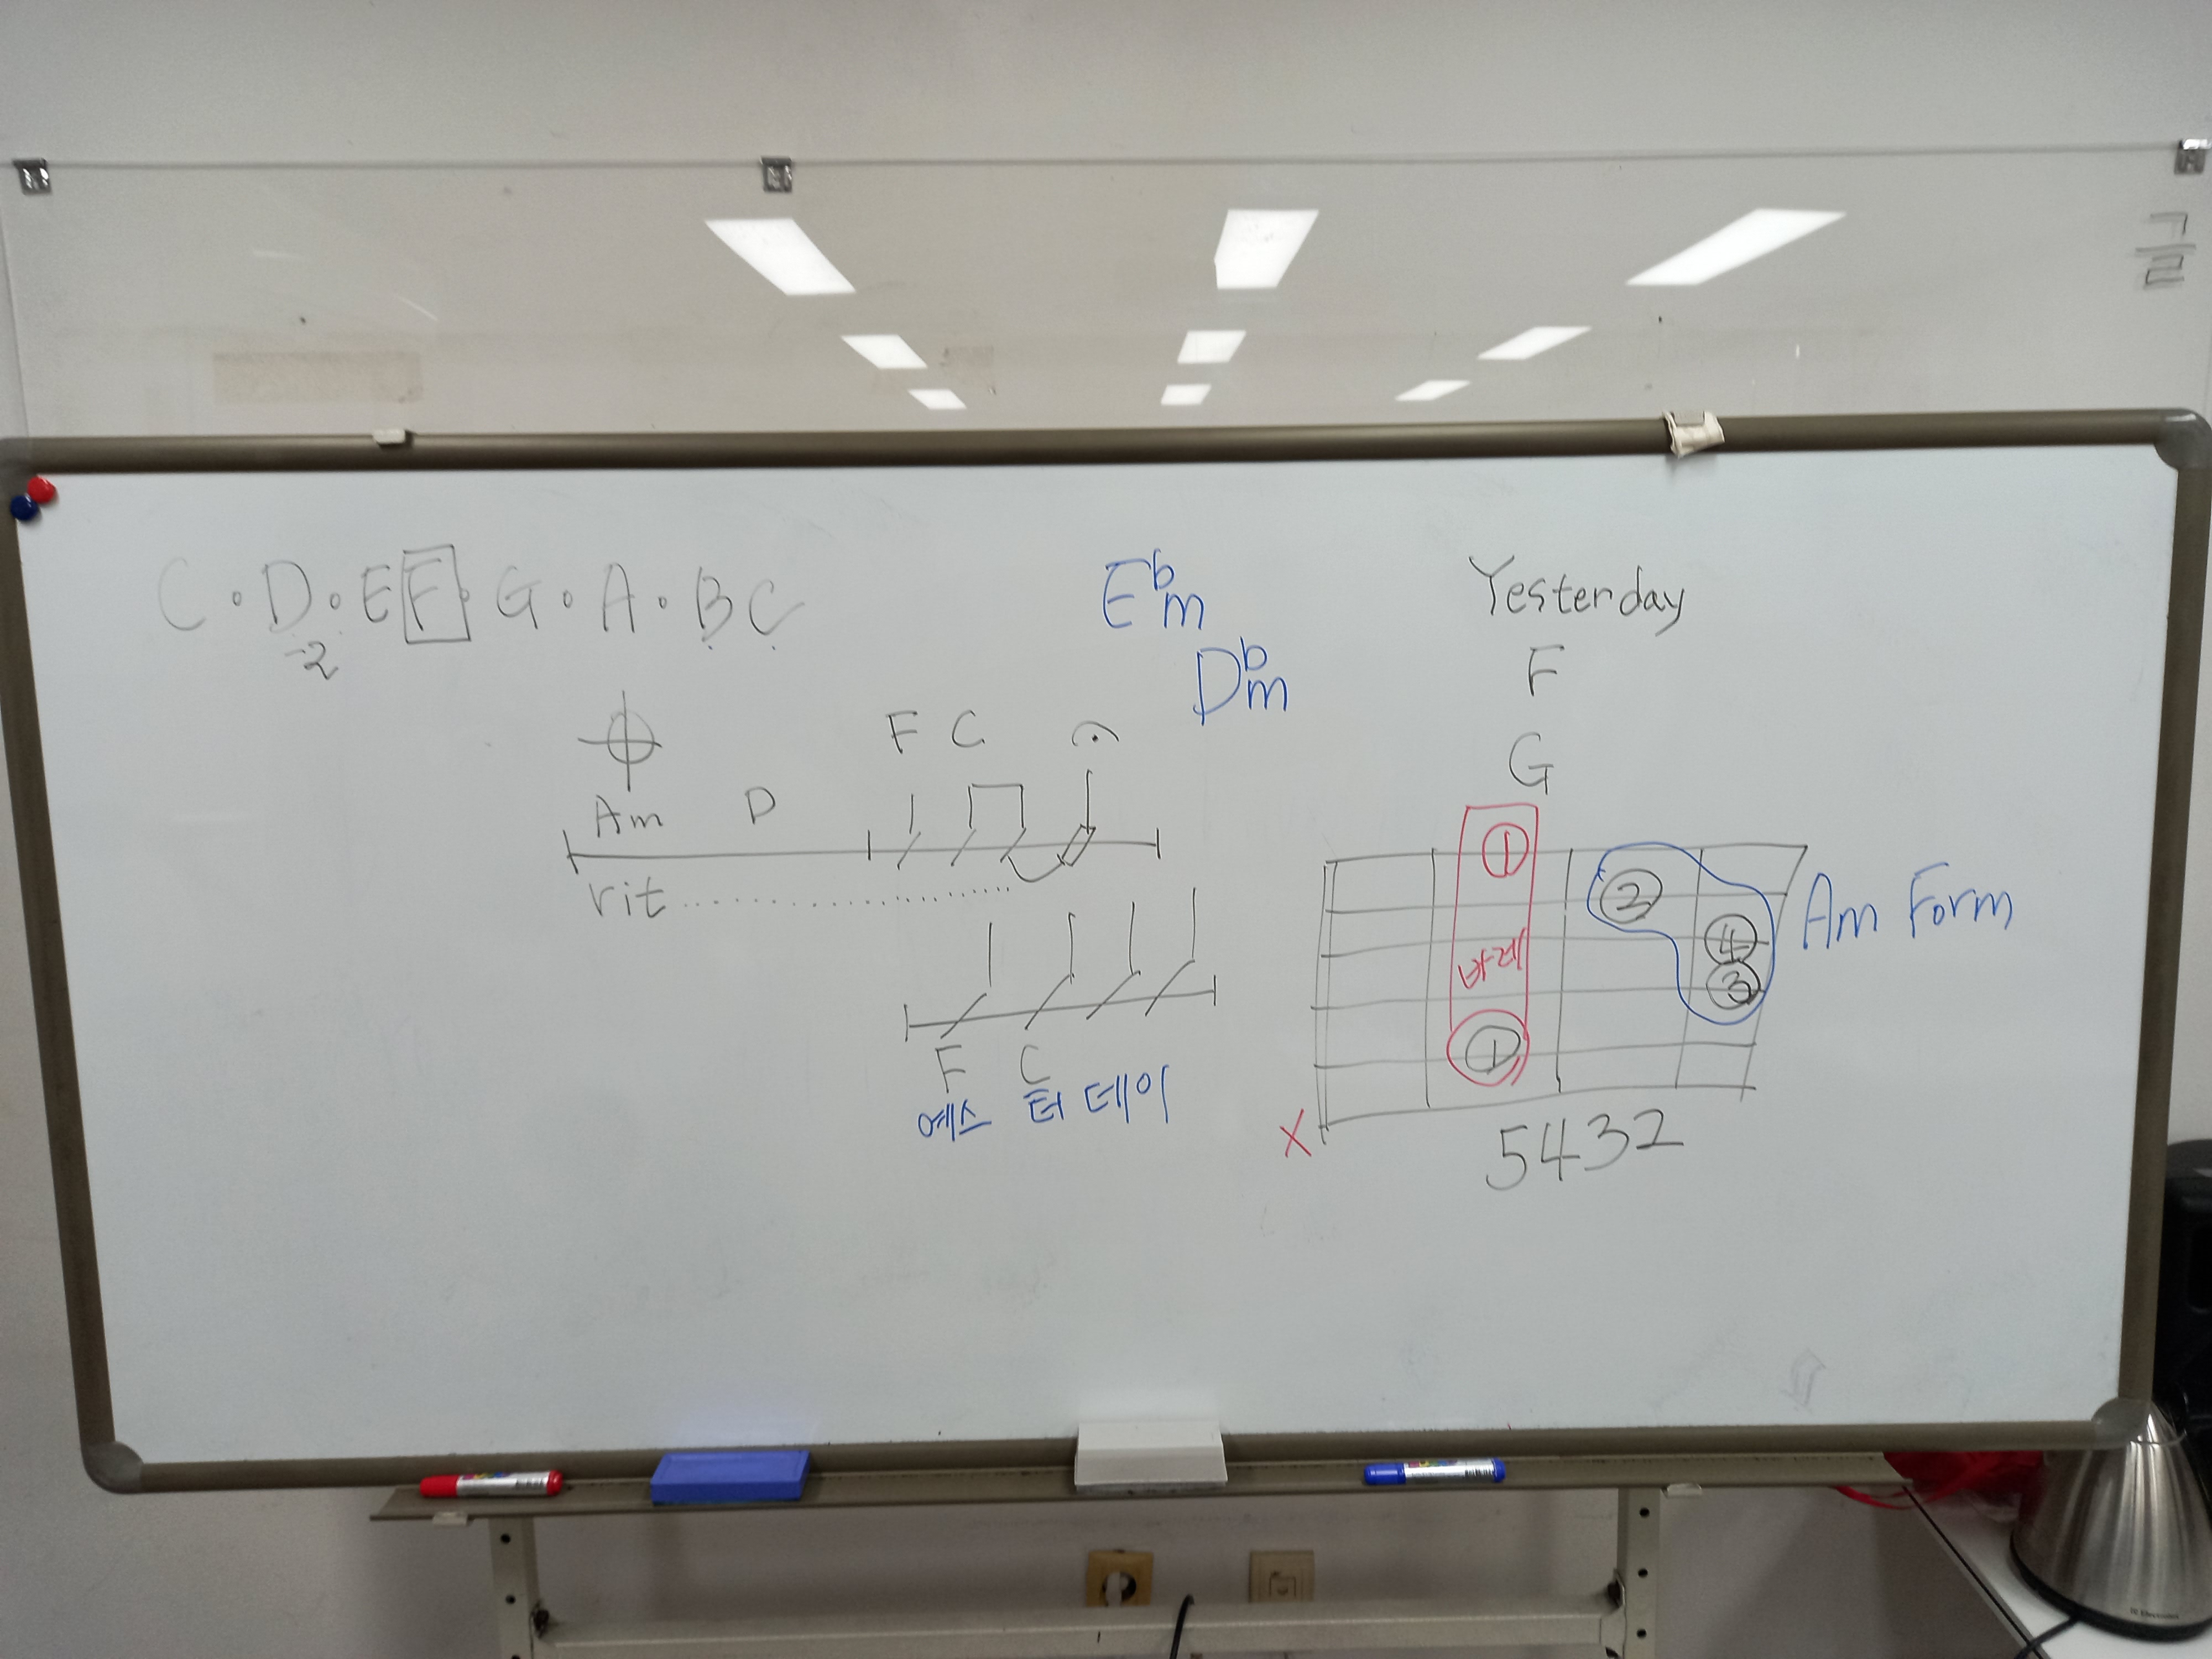 C · D · E F · G · A · B C
-2
E♭m
D♭m
Yesterday
F
G
Am D F C
rit..............
F C
예스 터 데이
① 
바레
①
②
④
③
Am Form
X
5432